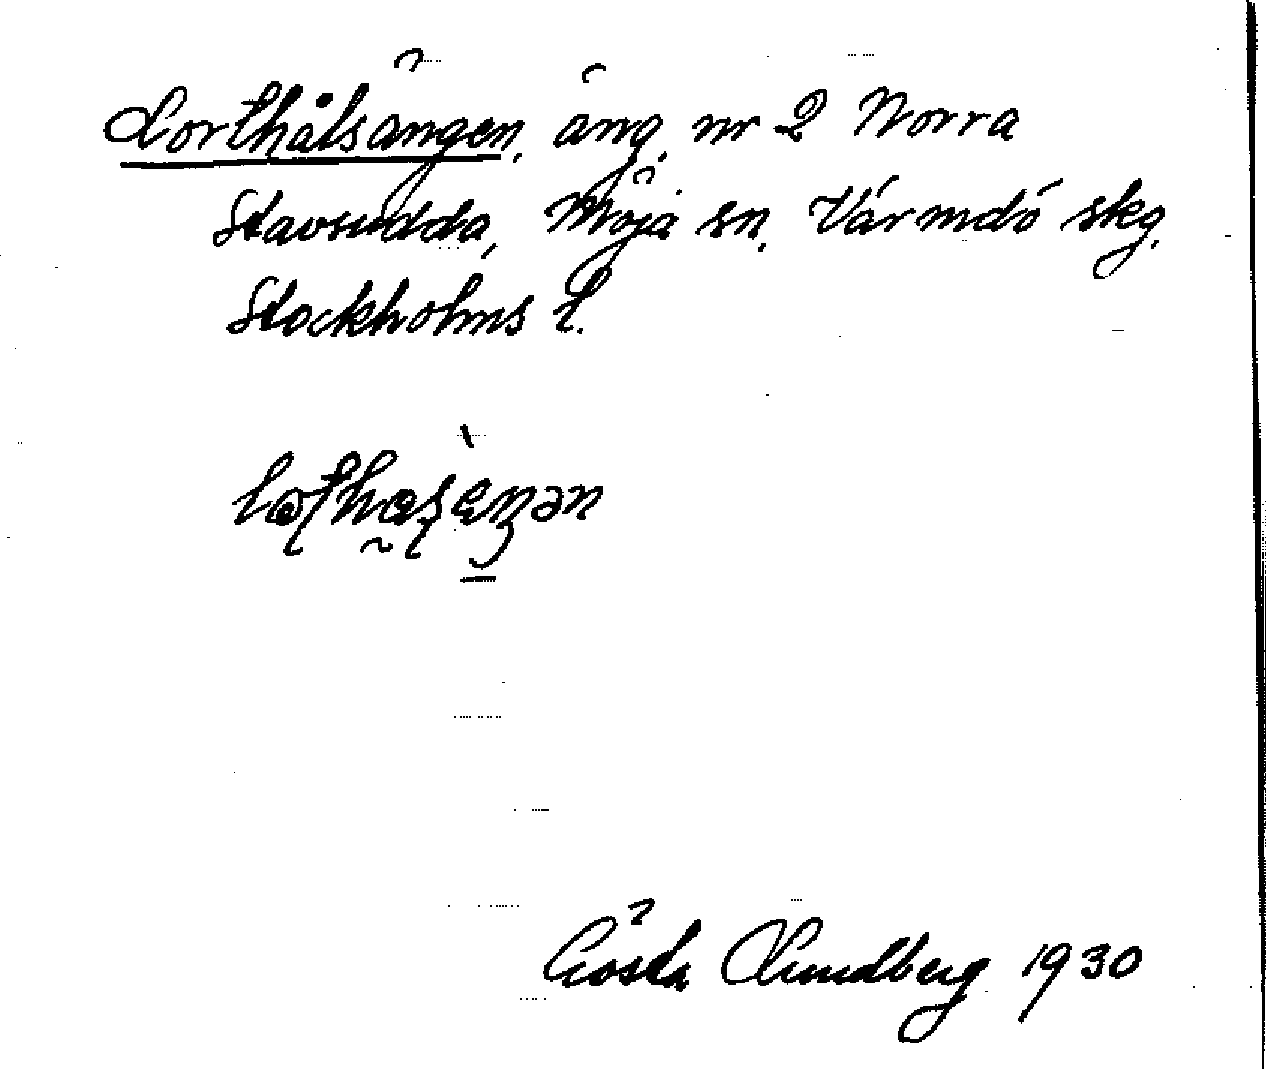 Lorthålsängen, äng, nr 2 Norra
Stavsudda, Möja sn, Värmdö skg,
Stockholms l.
Gösta Lundberg 1930